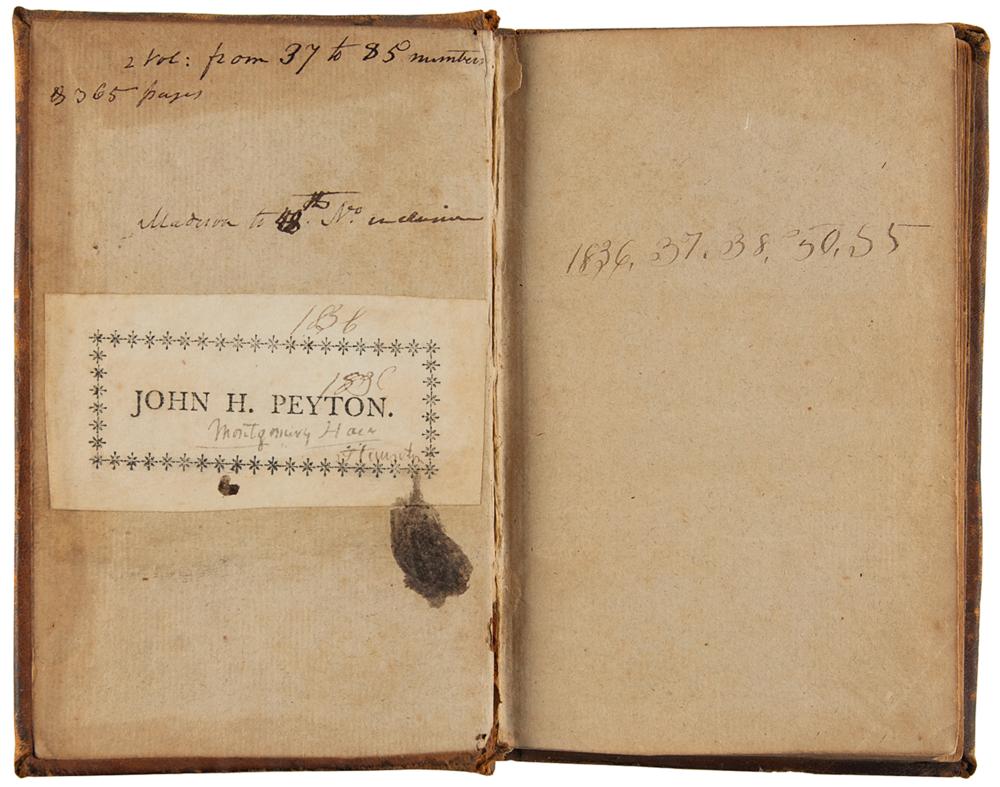 2 Vol: from 37 to 85 numbers
& 365 pages
Madison to 48th. No. inclusive
1836
JOHN H. PEYTON.
Montgomery Hall
1836, 37. 38, 50, 55